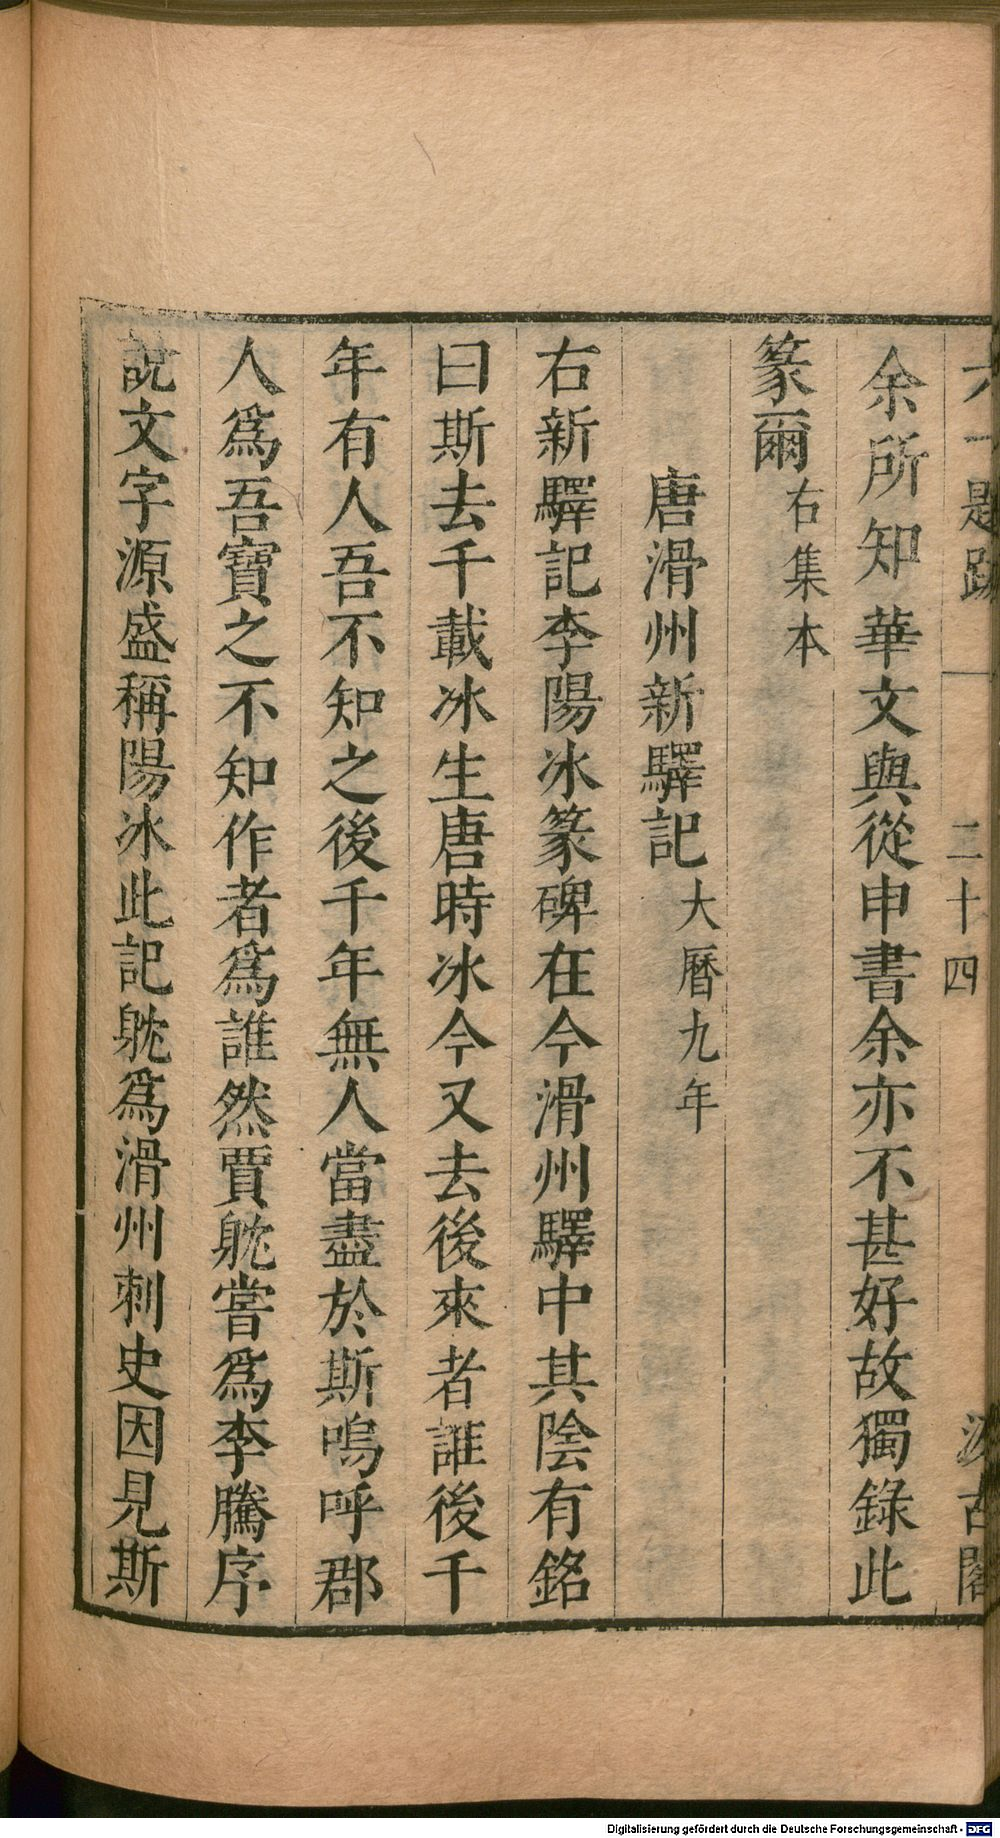 六一題跋 二十四 汲古閣
余所知華文與從申書余亦不甚好故獨錄此
篆爾右集本
唐滑州新驛記大曆九年
右新驛記李陽冰篆碑在今滑州驛中其陰有銘
曰斯去千載冰生唐時冰今又去後來者誰後千
年有人吾不知之後千年無人當盡於斯嗚呼郡
人為吾寶之不知作者為誰然賈躭嘗為李騰序
說文字源盛稱陽冰此記躭為滑州刺史因見斯
Digitalisierung gefördert durch die Deutsche Forschungsgemeinschaft - DFG